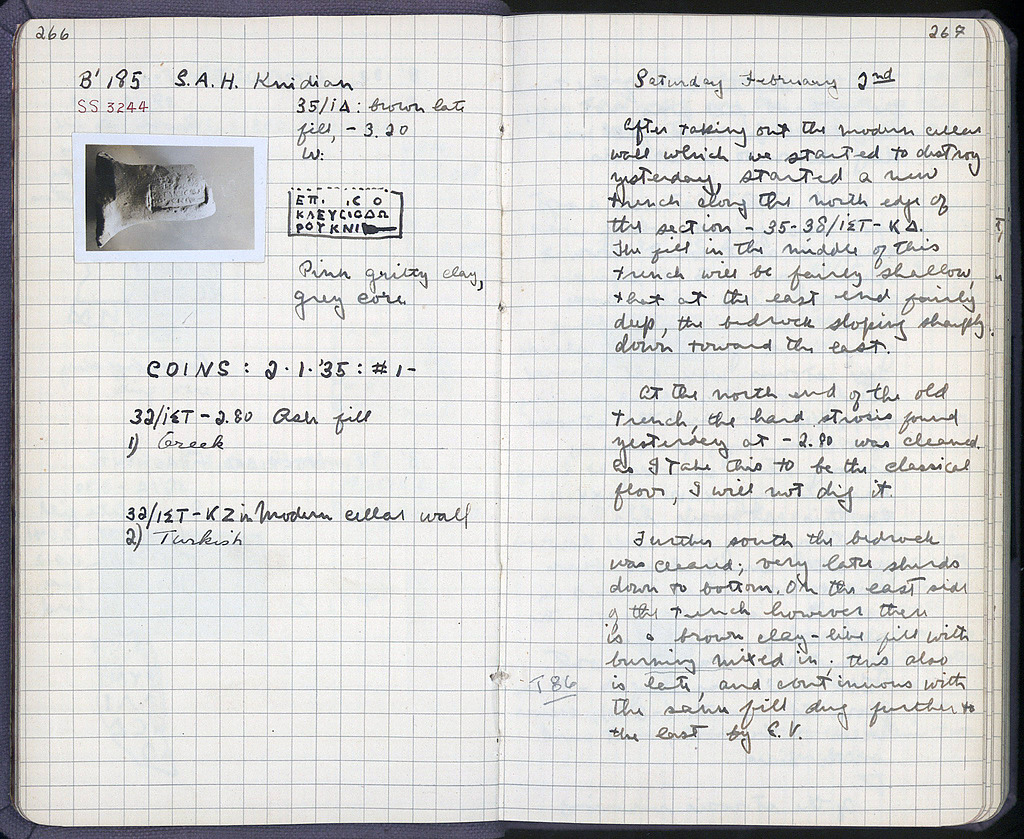 266
B' 185 S.A.H. Knidian
SS 3244
35/ΙΔ : brown late
fill, - 3.20
W:
ΕΠΙ . ΙϹΟ
ΚΛΕΥϹΙΟΔΩ
ΡΟΥ ΚΝΙ
Pink gritty clay,
grey core
COINS : 2·1·'35 : #1-
32/ΙΣΤ - 2.80 Ash fill
1) Greek
32/ΙΣΤ-ΚΖ in Modern cellar wall
2) Turkish
267
Saturday February 2nd
After taking out the modern cellar
wall which we started to destroy
yesterday, started a new
trench along the north edge of
the section - 35-38/ΙΣΤ-ΚΔ.
The fill in the middle of this
trench will be fairly shallow,
that at the east end fairly
deep, the bedrock sloping sharply
down toward the east.
At the north end of the old
trench, the hard strosis found
yesterday at -2.80 was cleaned.
As I take this to be the classical
floor, I will not dig it.
Further south the bedrock
was cleaned; very late sherds
down to bottom. On the east side
of the trench however there
is a brown clay-like fill with
burning mixed in; this also
is late, and continuous with
T86
the same fill dug further to
the east by E.V.